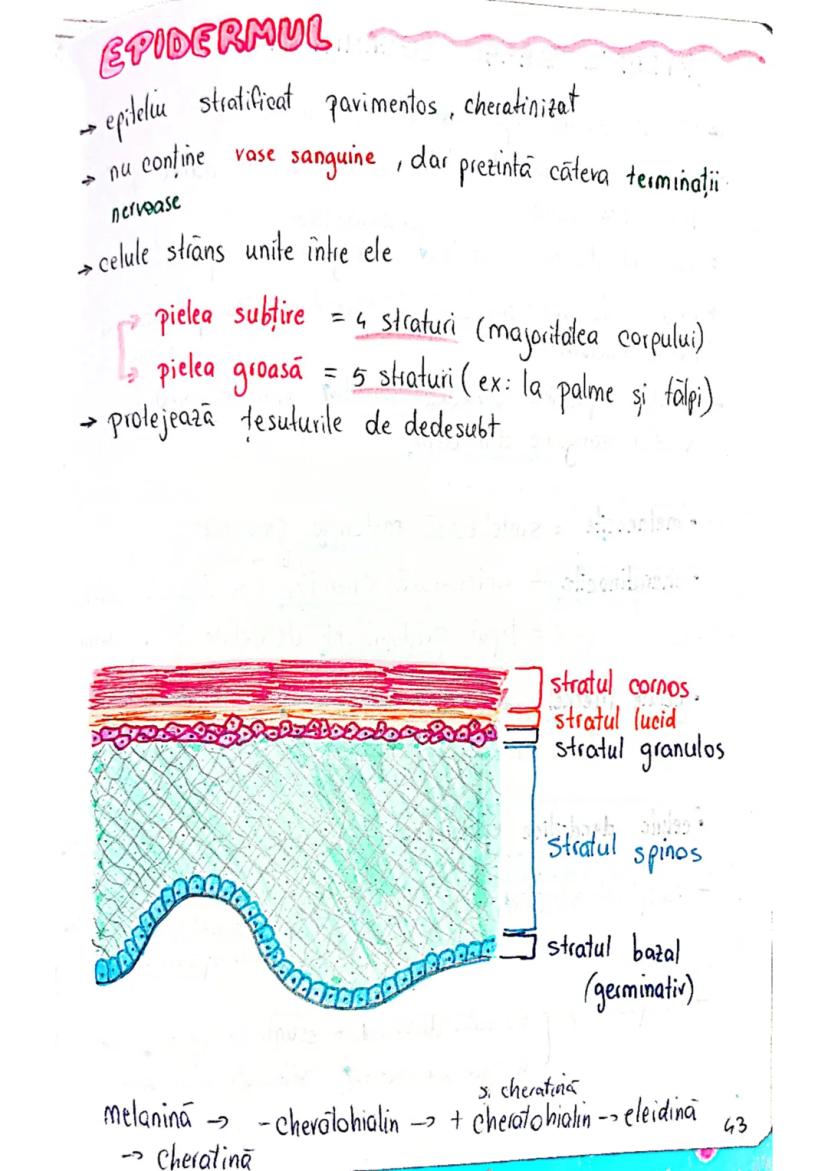 EPIDERMUL
→ epiteliu stratificat pavimentos, cheratinizat
→ nu conține vase sanguine, dar prezintă câteva terminații
nervoase
→ celule strâns unite între ele
pielea subțire = 4 straturi (majoritatea corpului)
pielea groasă = 5 straturi (ex: la palme și tălpi)
→ protejează țesuturile de dedesubt
stratul cornos
stratul lucid
stratul granulos
stratul spinos
stratul bazal
(germinativ)
s. cheratină
melanină → - cheratohialin → + cheratohialin → eleidină
→ cheratină
43